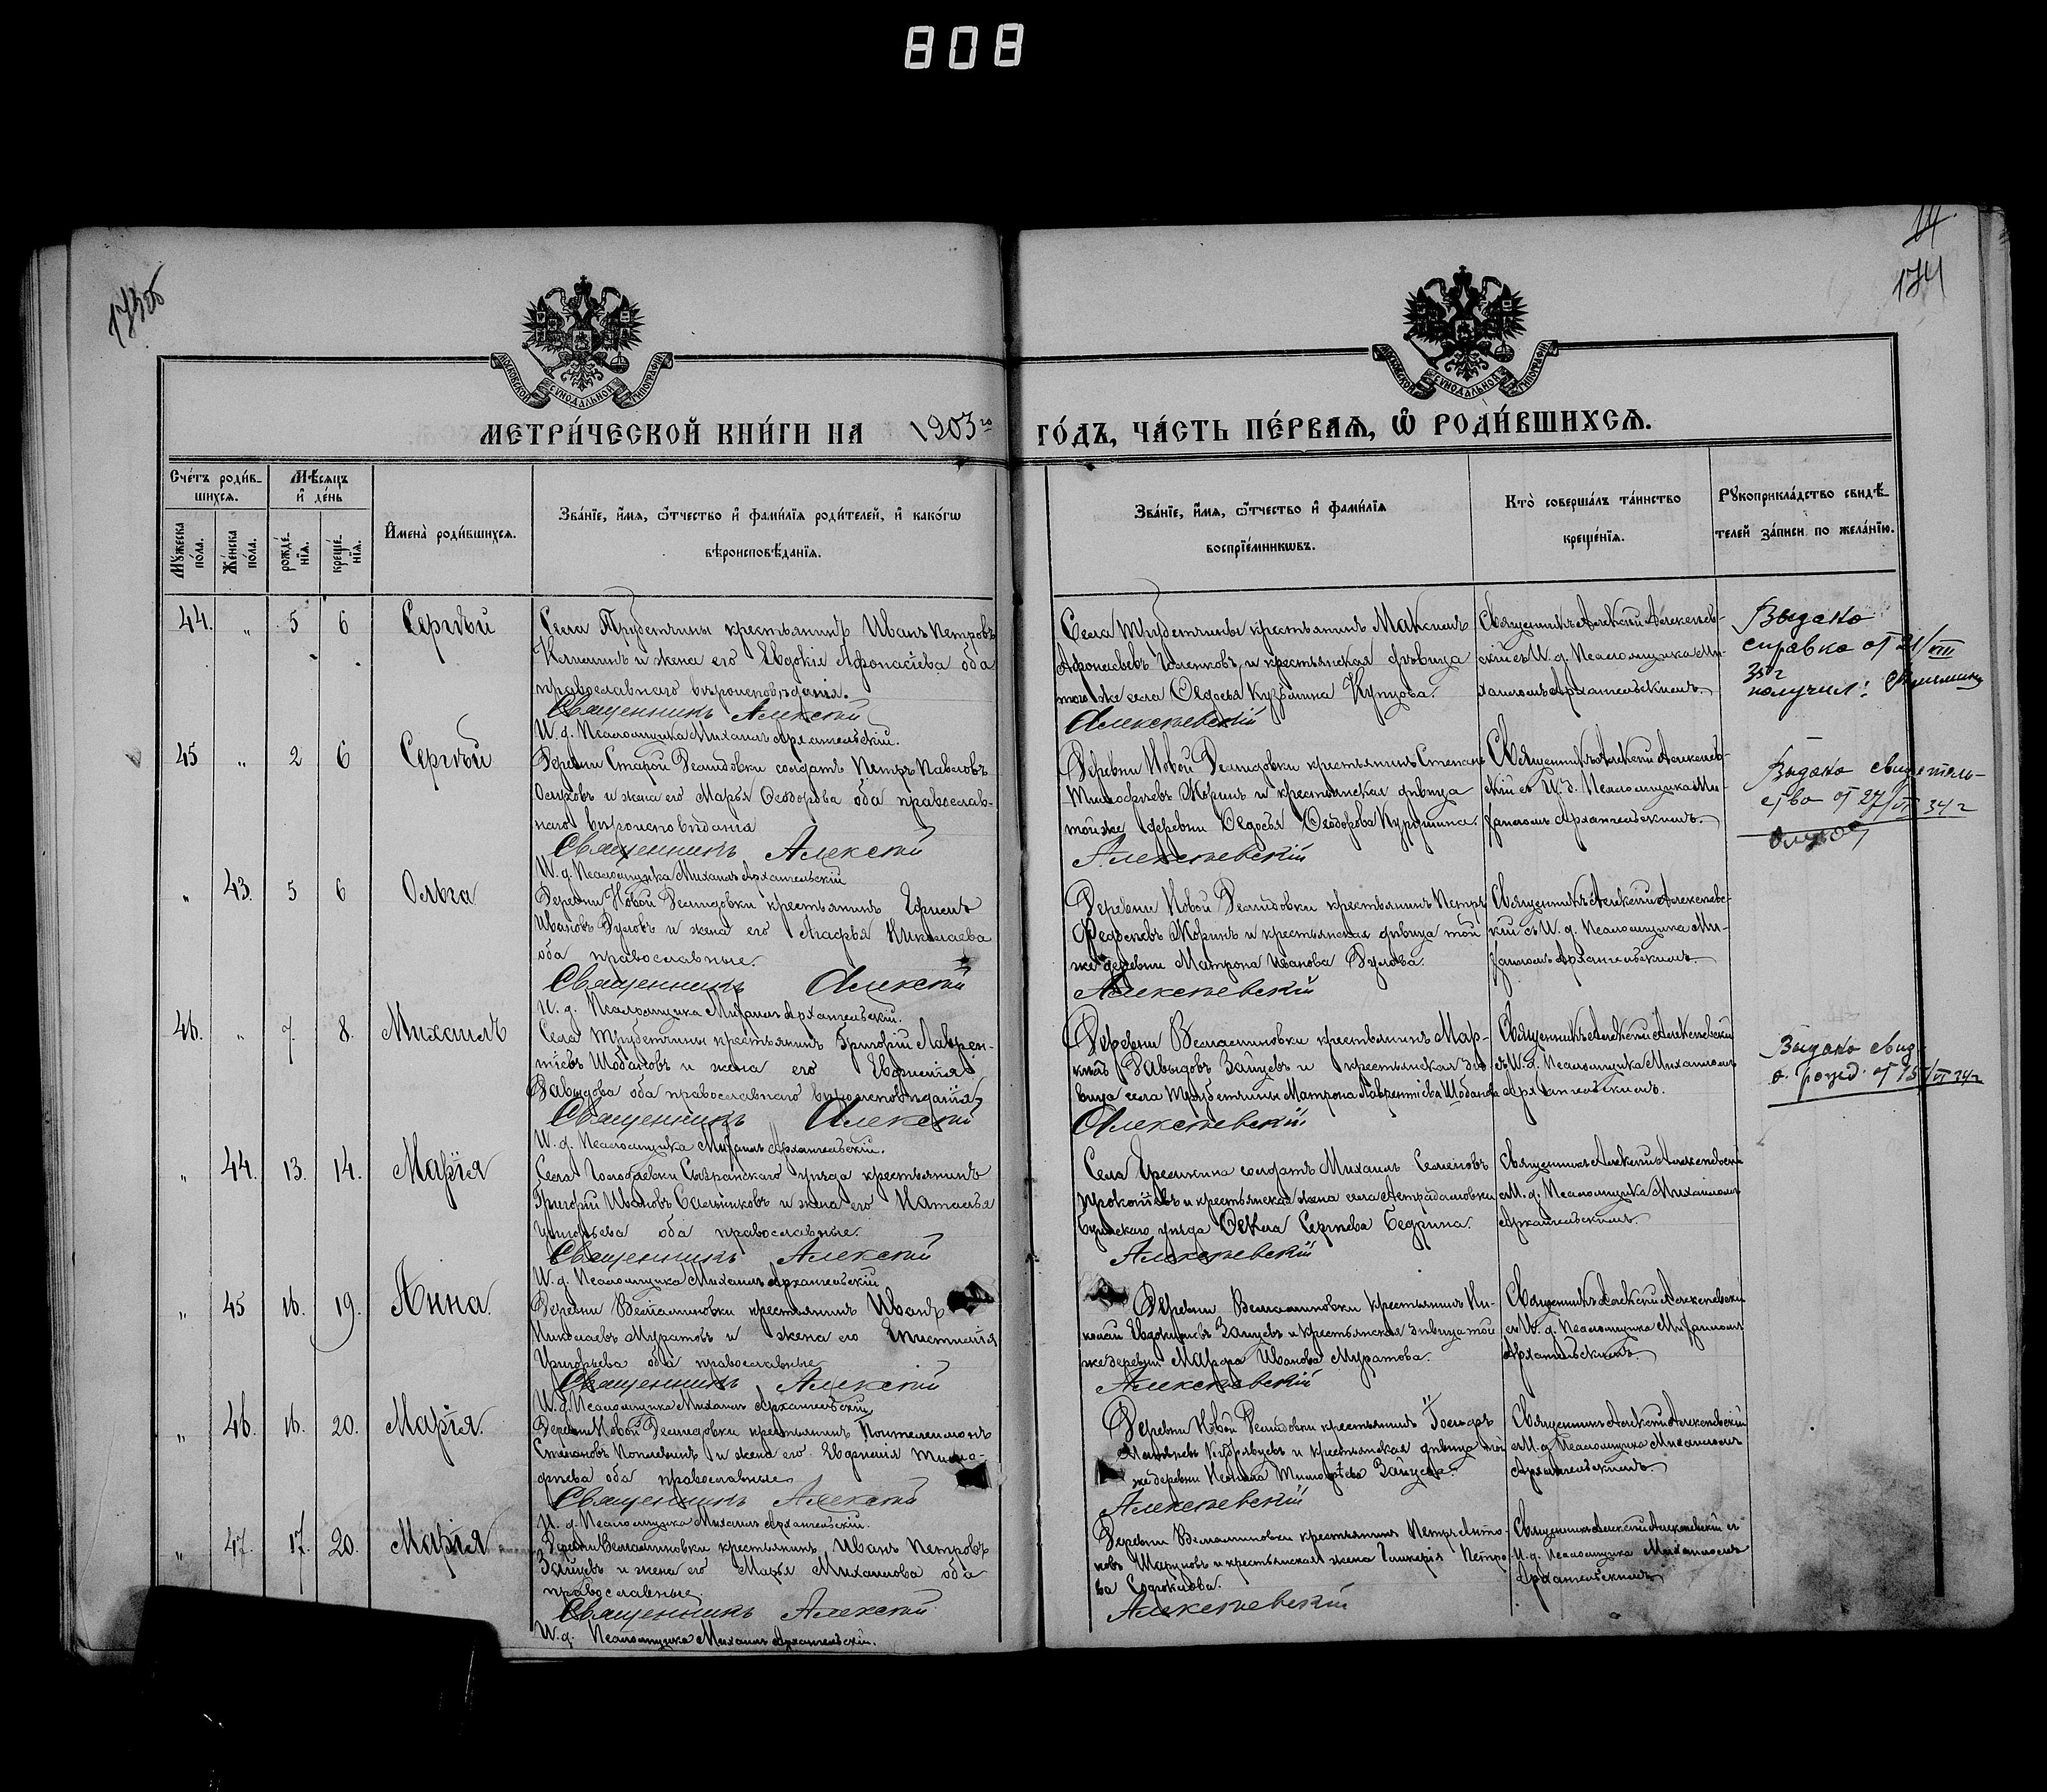 808
14
173об
174
МОСКОВСКОЙ СѴНОДАЛЬНОЙ ТИПОГРАФІИ
МОСКОВСКОЙ СѴНОДАЛЬНОЙ ТИПОГРАФІИ
МЕТРИ́ЧЕСКОЙ КНИ́ГИ НА 1903го ГО́ДЪ, ЧА́СТЬ ПЕ́РВАѦ, Ѡ҆ РОДИ́ВШИХСѦ.
Сче́тъ роди́в-
шихсѧ.
Мꙋ́жеска по́ла.
Же́нска по́ла.
Мѣ́сѧцъ и҆ де́нь
рожде́-
нїѧ.
креще́-
нїѧ.
И҆мена̀ роди́вшихсѧ.
Зва́нїе, и҆́мѧ, ѻ҆́тчество и҆ фами́лїѧ роди́телей, и҆ како́гѡ
вѣроисповѣ́данїѧ.
Зва́нїе, и҆́мѧ, ѻ҆́тчество и҆ фами́лїѧ
воспрїе́мникѡвъ.
Кто̀ соверша́лъ та́инство
креще́нїѧ.
Рꙋкоприкла́дство свидѣ́-
телей за́писи по жела́нїю.
44. „ 5 6 Сергѣй
Села Трубетчины крестьянинъ Иванъ Петровъ
Климинъ и жена его Евдокія Афонасіева оба
православнаго вѣроисповѣданія.
Священникъ Алексій
И. д. Псаломщика Михаилъ Архангельскій.
Села Трубетчины крестьянинъ Максимъ
Афонасьевъ Голенковъ и крестьянская дѣвица
того же села Ѳедосья Кузьмина Купцова.
Алексѣевскій
Священникъ Алексій Алексѣев-
скій съ И. д. Псаломщика Ми-
хаиломъ Архангельскимъ.
Выдано
справка от 21/VIII
35 г
получил:
45 „ 2 6 Сергѣй
Деревни Старой Демидовки солдатъ Петръ Павловъ
Осиповъ и жена его Марья Ѳеодорова оба православ-
наго вѣроисповѣданія
Священникъ Алексій
И. д. Псаломщика Михаилъ Архангельскій
Деревни Новой Демидовки крестьянинъ Степанъ
Тимофѣевъ Жоринъ и крестьянская дѣвица
той же деревни Ѳедосья Ѳеодорова
Алексѣевскій
Священникъ Алексій Алексѣев-
скій съ И. д. Псаломщика Ми-
хаиломъ Архангельскимъ.
Выдано свидетель-
ство от 27/VI 34 г
„ 43. 5 6 Ольга
Деревни Новой Демидовки крестьянинъ Ефимъ
Ивановъ Дуловъ и жена его Агафья Николаева
оба православные.
Священникъ Алексій
И. д. Псаломщика Михаилъ Архангельскій.
Деревни Новой Демидовки крестьянинъ Петръ
Жоринъ и крестьянская дѣвица той
же деревни Матрона Иванова Дулова.
Алексѣевскій
Священникъ Алексій Алексѣевс-
кій съ И. д. Псаломщика Ми-
хаиломъ Архангельскимъ.
46. „ 7. 8. Михаилъ
Села Трубетчины крестьянинъ Григорій Лаврен-
тіевъ Шобановъ и жена его Евфимія
Давыдова оба православнаго вѣроисповѣданія
Священникъ Алексій
И. д. Псаломщика Михаилъ Архангельскій.
Деревни Веніаминовки крестьянинъ Мар-
Давыдовъ Зайцевъ и крестьянская дѣ-
вица села Трубетчины Матрона Лаврентіева Шобанова
Алексѣевскій
Священникъ Алексій Алексѣевскій
съ И. д. Псаломщика Михаиломъ
Архангельскимъ.
Выдано свид.
о. рожд. от 15/VI 34 г
„ 44. 13. 14. Марія
Села уѣзда крестьянинъ
Григорій Ивановъ Сальниковъ и жена его Наталья
Григорьева оба православные.
Священникъ Алексій
И. д. Псаломщика Михаилъ Архангельскій
Села солдатъ Михаилъ Семеновъ
Прокопіевъ и крестьянская жена села
уѣзда Ѳекла Сергѣева Бедрина.
Алексѣевскій
Священникъ Алексій Алексѣевскій
съ И. д. Псаломщика Михаиломъ
Архангельскимъ.
„ 45 16. 19. Анна.
Деревни Веніаминовки крестьянинъ Иванъ
Николаевъ Муратовъ и жена его Епистимія
Григорьева оба православные
Священникъ Алексій
И. д. Псаломщика Михаилъ Архангельскій
Деревни Веніаминовки крестьянинъ Ни-
колай Евдокимовъ Зайцевъ и крестьянская дѣвица той
же деревни Марфа Иванова Муратова.
Алексѣевскій
Священникъ Алексій Алексѣевскій
съ И. д. Псаломщика Михаиломъ
Архангельскимъ.
„ 46. 16. 20. Марія.
Деревни Новой Демидовки крестьянинъ Пантелеимонъ
Степановъ и жена его Евфимія Тимо-
фѣева оба православные
Священникъ Алексій
И. д. Псаломщика Михаилъ Архангельскій.
Деревни Новой Демидовки крестьянинъ
Кудрявцевъ и крестьянская дѣвица той
же деревни Неонила Тимофѣева Зайцева.
Алексѣевскій
Священникъ Алексій Алексѣевскій
съ И. д. Псаломщика Михаиломъ
Архангельскимъ.
„ 47. 17. 20. Марія
Деревни Веніаминовки крестьянинъ Иванъ Петровъ
Зайцевъ и жена его Марья Михаилова оба
православные.
Священникъ Алексій
И. д. Псаломщика Михаилъ Архангельскій.
Деревни Веніаминовки крестьянинъ Петръ Анто-
новъ и крестьянская жена Гликерія Петро-
ва
Алексѣевскій
Священникъ Алексій Алексѣевскій съ
И. д. Псаломщика Михаиломъ
Архангельскимъ